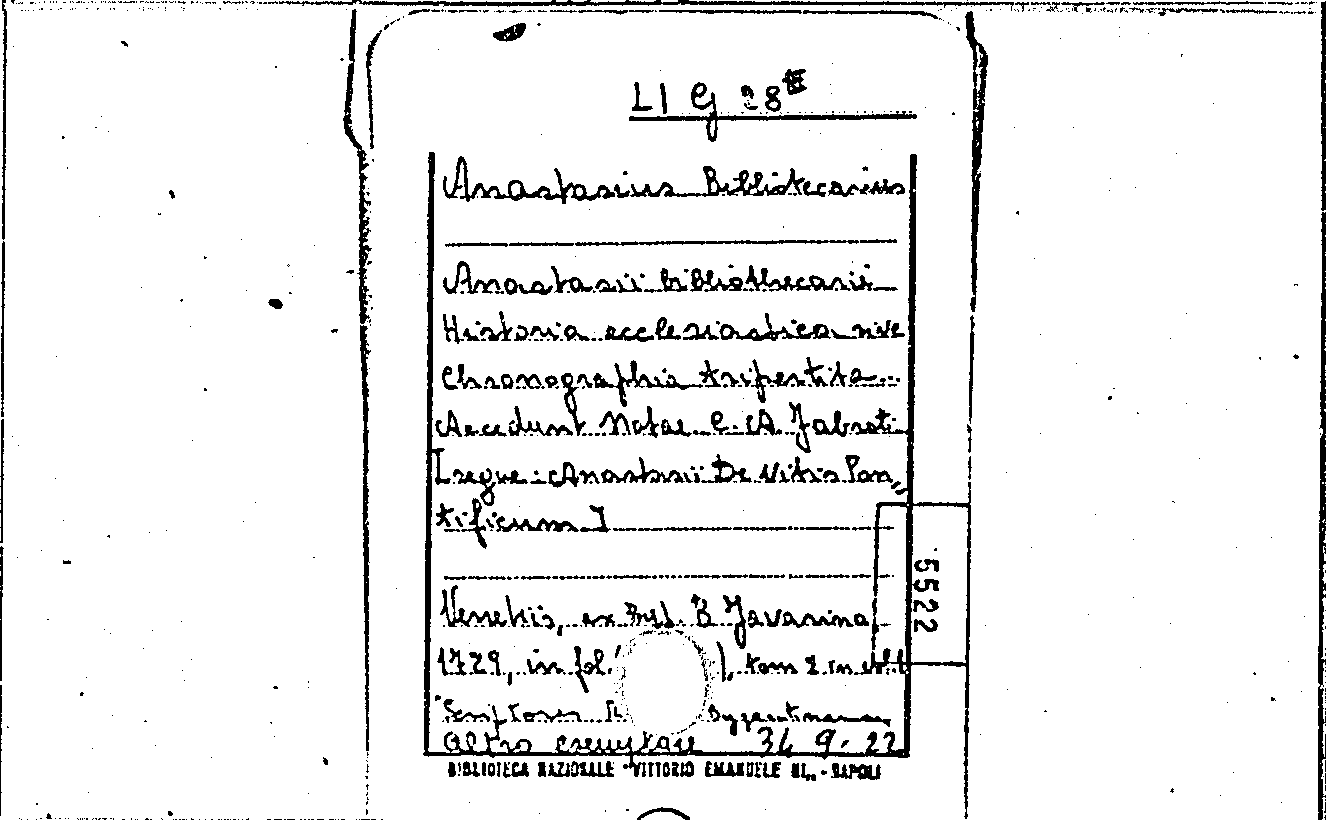 LI G 28
Anastasius Bibliotecarius
Anastasii bibliothecarii
Historia ecclesiastica sive
Chronographia tripertita...
Accedunt Notae C. A. Fabroti
[segue: Anastasii De Vitis Pon„
tificum]
Venetiis, ex B. Javarina,
1729, in fol. ), tom 2 in
Scriptores Byzantinae
Altro esemplare 34 9. 22
BIBLIOTECA NAZIONALE "VITTORIO EMANUELE III„ - NAPOLI
5522